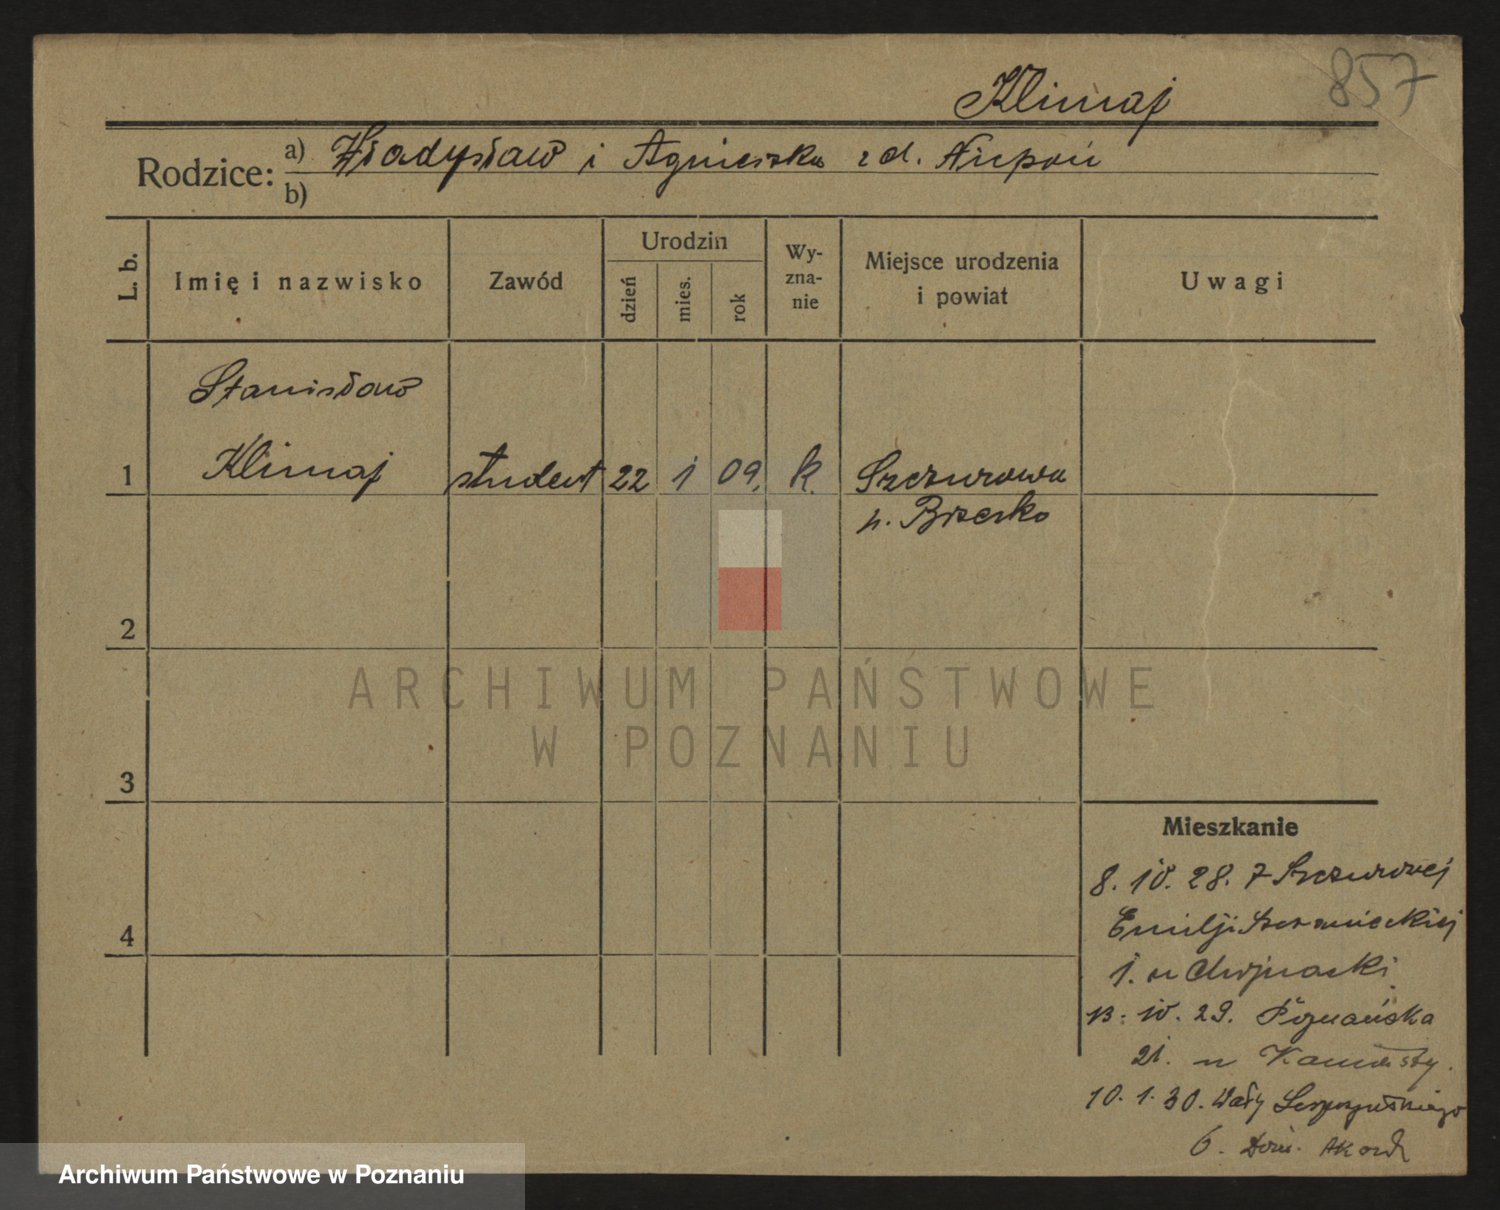 857
Klimaj
Rodzice: a) Władysław i Agnieszka z d. Niepoń
b)
L. b. Imię i nazwisko Zawód Urodzin dzień mies. rok Wy-zna-nie Miejsce urodzenia i powiat Uwagi
Stanisław
1 Klimaj student 22 1 09. k. Szczurowa
p. Brzesko
2
ARCHIWUM PAŃSTWOWE
W POZNANIU
3
Mieszkanie
8. 10. 28. z Szczurowej
4 Emilji Sczanieckiej
1. u Chojnacki
13. 10. 29. Poznańska
21. u
10. 1. 30. Wały
6. Dom. Akad.
Archiwum Państwowe w Poznaniu